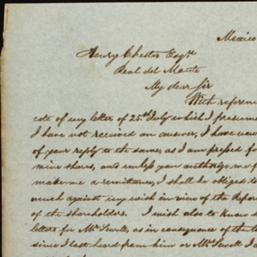 Mexico
Henry Chester Esqr.
Real del Monte
My dear Sir
With referen
cate of my letter of 25th July which I presume
I have not received an answer, I have
of your reply to the same, as I am pressed for
mine shares, and unless you authorize me
make me a remittance, I shall be obliged to
much against my wish in view of the Repor
of the shareholders. I wish also to know
letters for Mr. in consequence of the
since I last heard from him or Mr. I